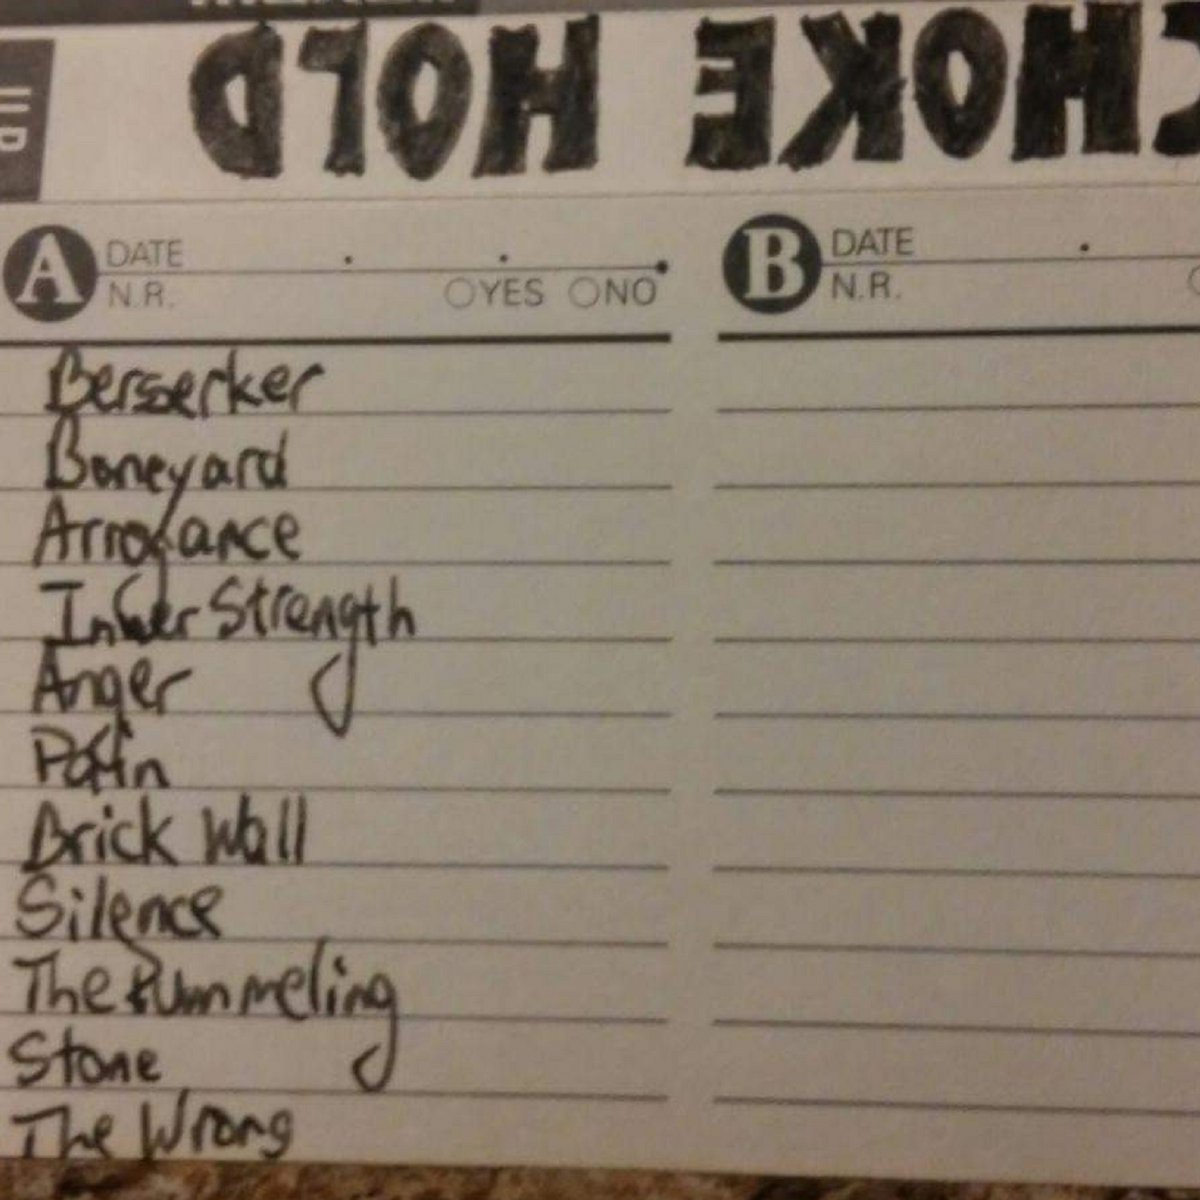 CHOKE HOLD
UR
A DATE
N.R. YES NO
B DATE
N.R.
Berserker
Boneyard
Arrogance
Inner Strength
Anger
Pain
Brick Wall
Silence
The Pummeling
Stone
The Wrong